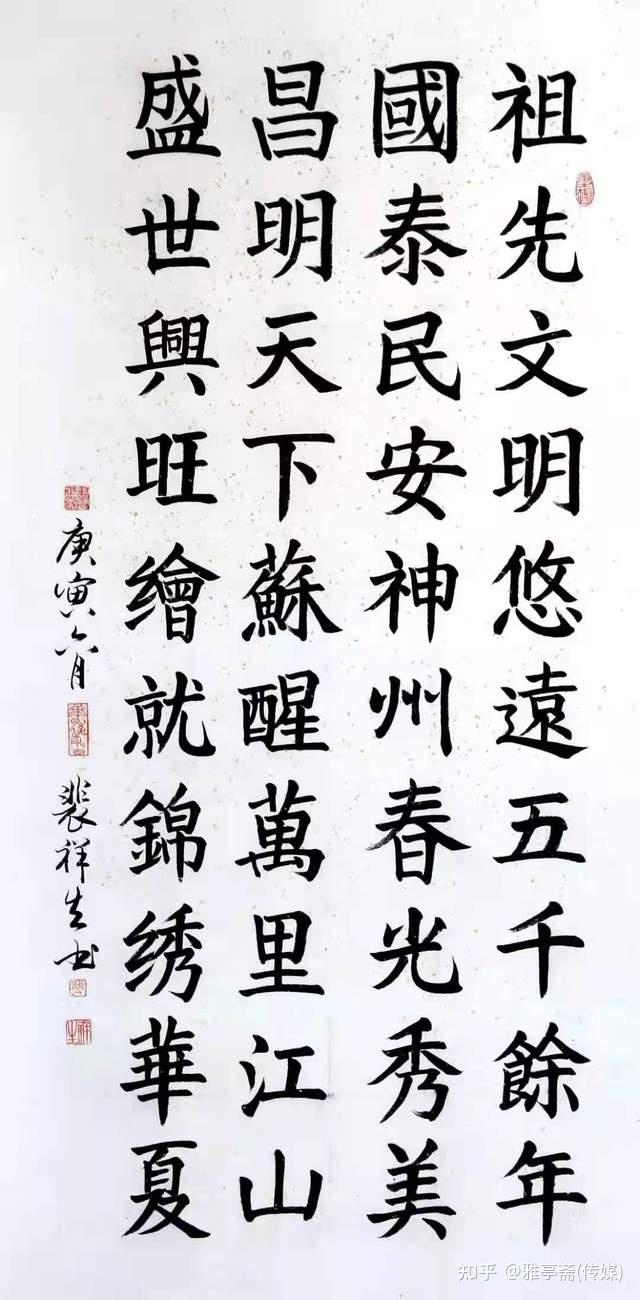 祖先文明悠遠五千餘年
國泰民安神州春光秀美
昌明天下蘇醒萬里江山
盛世興旺繪就錦绣華夏
庚寅六月
裴祥生书
知乎 @雅亭斋(传媒)